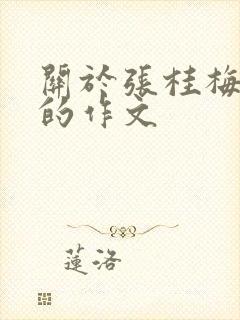 關於張桂梅
的作文
蓮洛